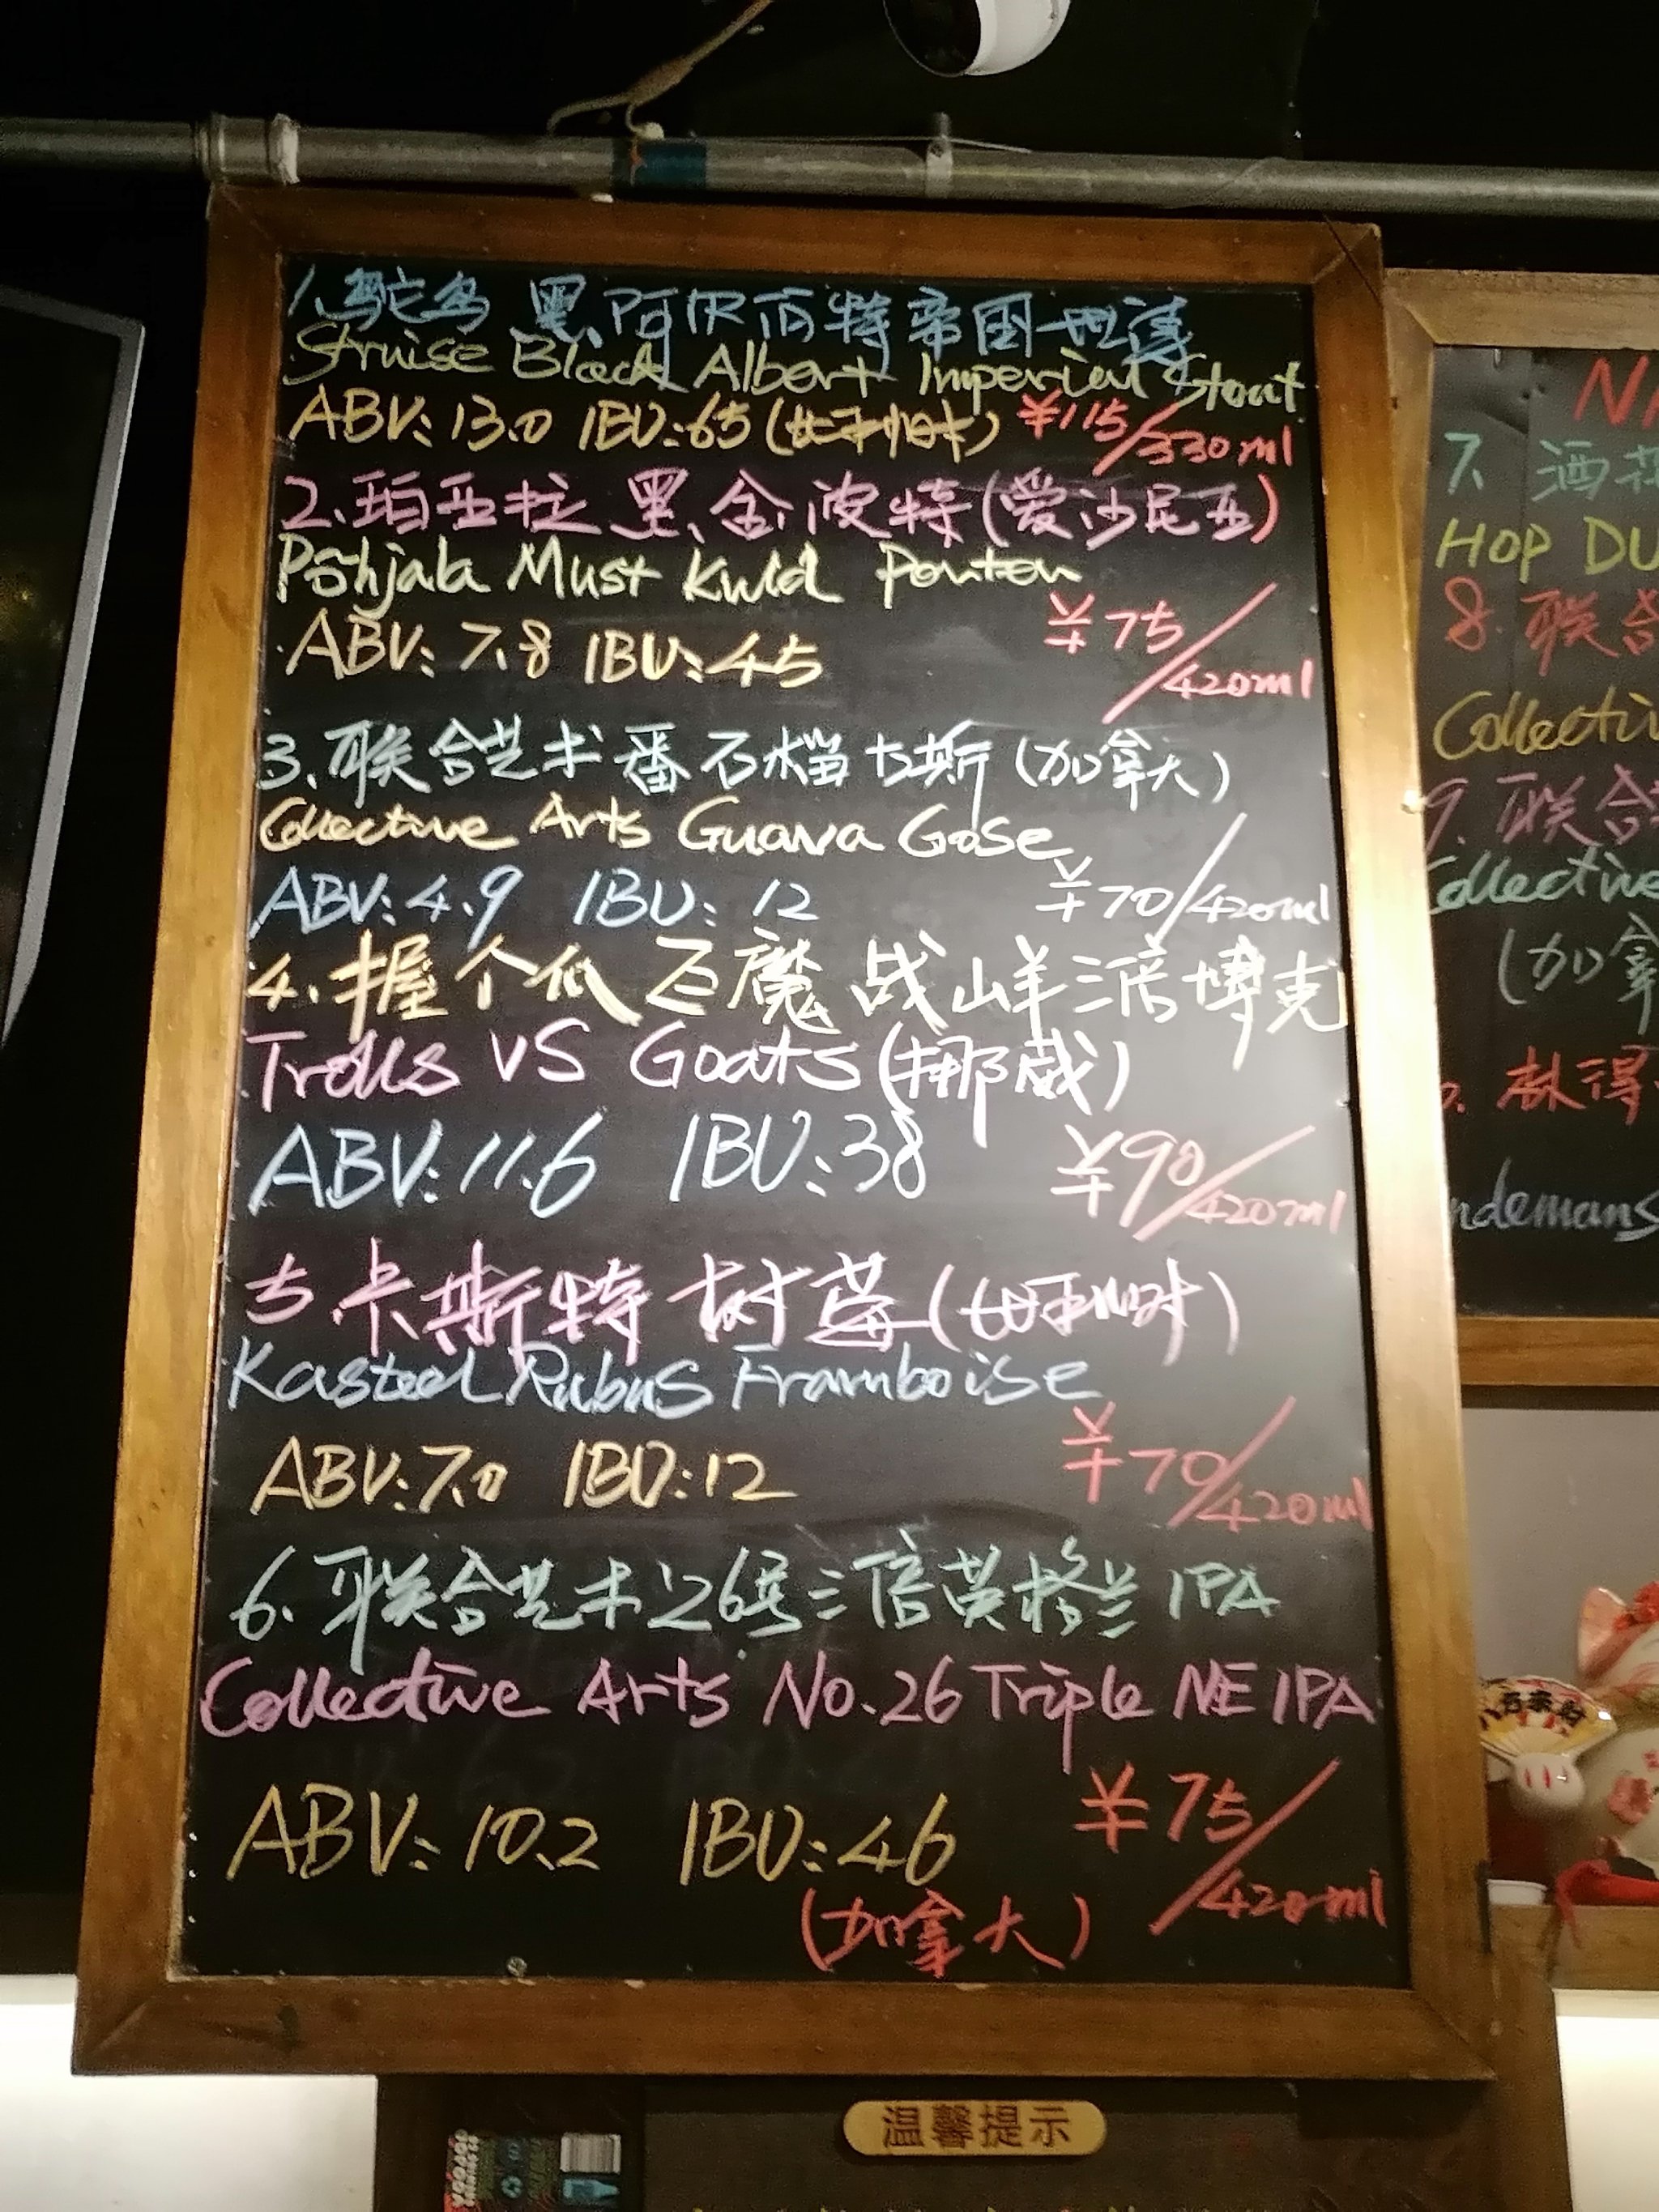 1.鸵鸟 黑阿尔伯特帝国世涛
Struise Black Albert Imperial Stout
ABV:13.0 IBU:65(比利时) ¥115/330ml
2.珀亚拉 黑金波特(爱沙尼亚)
Põhjala Must Kuld Porter
ABV:7.8 IBU:45 ¥75/420ml
3.联合艺术番石榴古斯(加拿大)
Collective Arts Guava Gose
ABV:4.9 IBU:12 ¥70/420ml
4.握个爪 巨魔战山羊三倍博克
Trolls VS Goats(挪威)
ABV:11.6 IBU:38 ¥90/420ml
5.卡斯特树莓(比利时)
Kasteel Rubus Framboise
ABV:7.0 IBU:12 ¥70/420ml
6.联合艺术26号三倍英格兰IPA
Collective Arts No.26 Triple NE IPA
ABV:10.2 IBU:46 ¥75/420ml
(加拿大)
7、酒花
HOP DU
8.联合
Collectiv
9.联合
Collective
(加拿
林得
ndemans
温馨提示